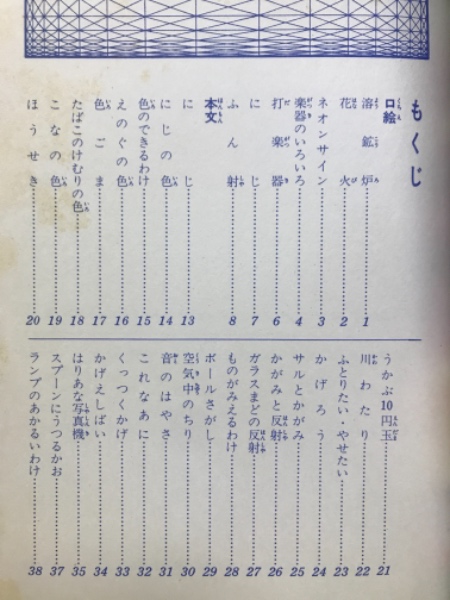 もくじ
口絵
溶鉱炉……1
花火……2
ネオンサイン……3
楽器のいろいろ……4
打楽器……6
にじ……7
ふん射……8
本文
にじ……13
にじの色……14
色のできるわけ……15
えのぐの色……16
色ごま……17
たばこのけむりの色……18
こなの色……19
ほうせき……20
うかぶ10円玉……21
川わたり……22
ふとりたい・やせたい……23
かげろう……24
サルとかがみ……25
かがみと反射……26
ガラスまどの反射……27
ものがみえるわけ……28
ボールさがし……29
空気中のちり……30
音のはやさ……31
これなあに……32
くっつくかげ……33
かげえしばい……34
はりあな写真機……35
スプーンにうつるかお……37
ランプのあかるいわけ……38